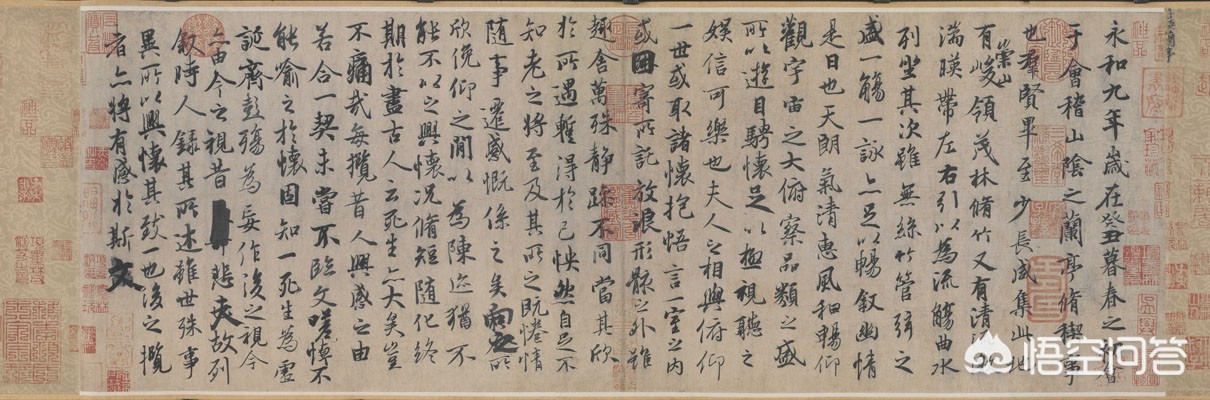 永和九年歲在癸丑暮春之初會
于會稽山陰之蘭亭脩禊事
也羣賢畢至少長咸集此地
有崇山峻領茂林脩竹又有清
湍暎帶左右引以為流觴曲水
列坐其次雖無絲竹管弦之
盛一觴一詠亦足以暢敘幽情
是日也天朗氣清惠風和暢仰
觀宇宙之大俯察品類之盛
所以遊目騁懷足以極視聽之
娛信可樂也夫人之相與俯仰
一世或取諸懷抱悟言一室之內
或因寄所託放浪形骸之外雖
趣舍萬殊靜躁不同當其欣
於所遇暫得於己怏然自足不
知老之將至及其所之既惓情
隨事遷感慨係之矣向之所
欣俛仰之閒以為陳迹猶不
能不以之興懷況脩短隨化終
期於盡古人云死生亦大矣豈
不痛哉每攬昔人興感之由
若合一契未嘗不臨文嗟悼不
能喻之於懷固知一死生為虛
誕齊彭殤為妄作後之視今
亦由今之視昔悲夫故列
敘時人錄其所述雖世殊事
異所以興懷其致一也後之攬
者亦將有感於斯文
悟空问答